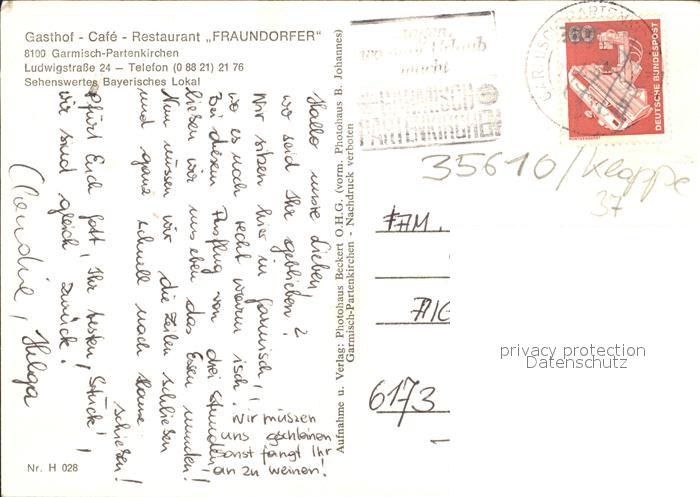 Gasthof - Café - Restaurant „FRAUNDORFER"
8100 Garmisch-Partenkirchen
Ludwigstraße 24 — Telefon (0 88 21) 21 76
Sehenswertes Bayerisches Lokal
Hallo unsre Lieben,
wo seid Ihr geblieben?
Wir sitzen hier in Garmisch,
wo es noch recht warm isch.
Bei diesem Ausflug von drei Stunden,
liesen wir uns eben das Essen munden!
Nun müssen wir die Zeilen schliesen
und ganz schnell nach Hause schiesen!
Pfürt Eich Gott, Ihr besten Stück!,
wir sind gleich zurück!
Claudia, Helga
wir müszen
uns
sonst fängt Ihr
an zu weinen!
Nr. H 028
Aufnahme u. Verlag: Photohaus Beckert O.H.G. (vorm. Photohaus B. Johannes)
Garmisch-Partenkirchen - Nachdruck verboten
GARMISCH
PARTENKIRCHEN
60
DEUTSCHE BUNDESPOST
35610/Klappe
37
FAM.
6173
privacy protection
Datenschutz